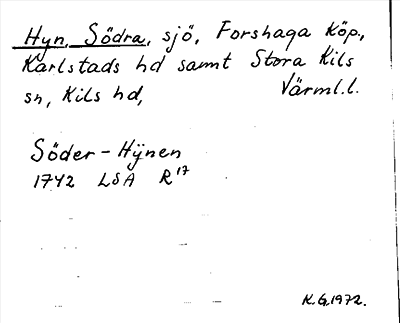 Hyn, Södra, sjö, Forshaga köp.,
Karlstads hd samt Stora Kils
sn, Kils hd, Värml.l.
Söder-Hÿnen
1742 LSA R17
K.G.1972.